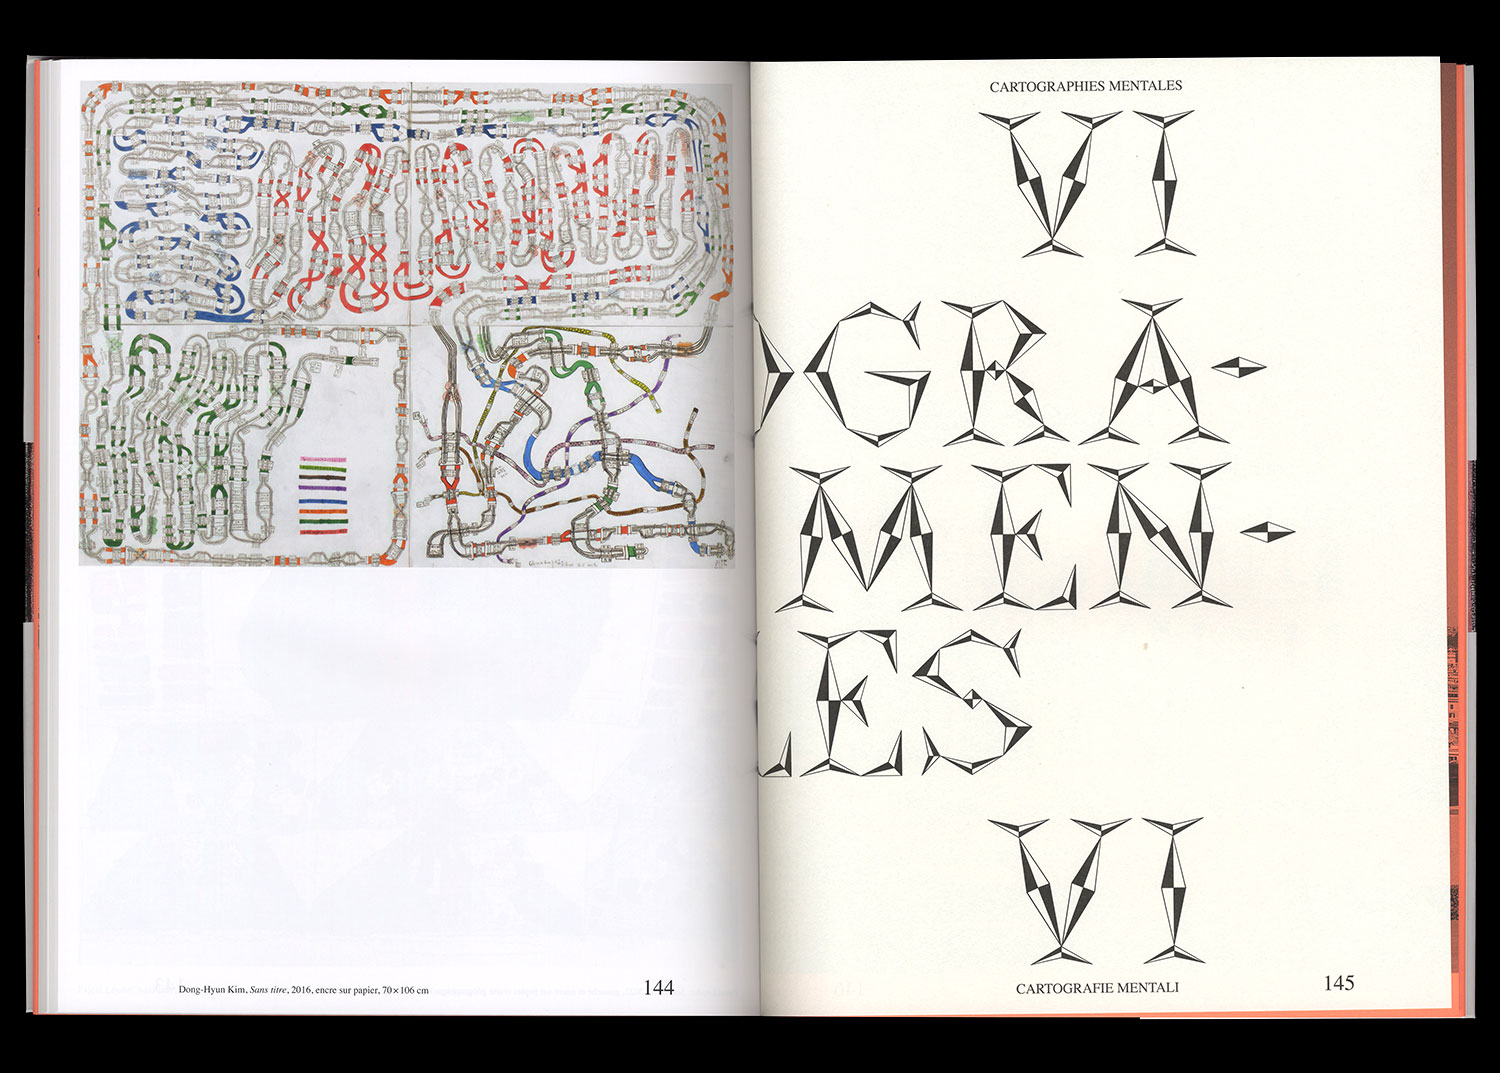 Dong-Hyun Kim, Sans titre, 2016, encre sur papier, 70 × 106 cm
144
CARTOGRAPHIES MENTALES
VI
OGRA-
MEN-
LES
VI
CARTOGRAFIE MENTALI
145